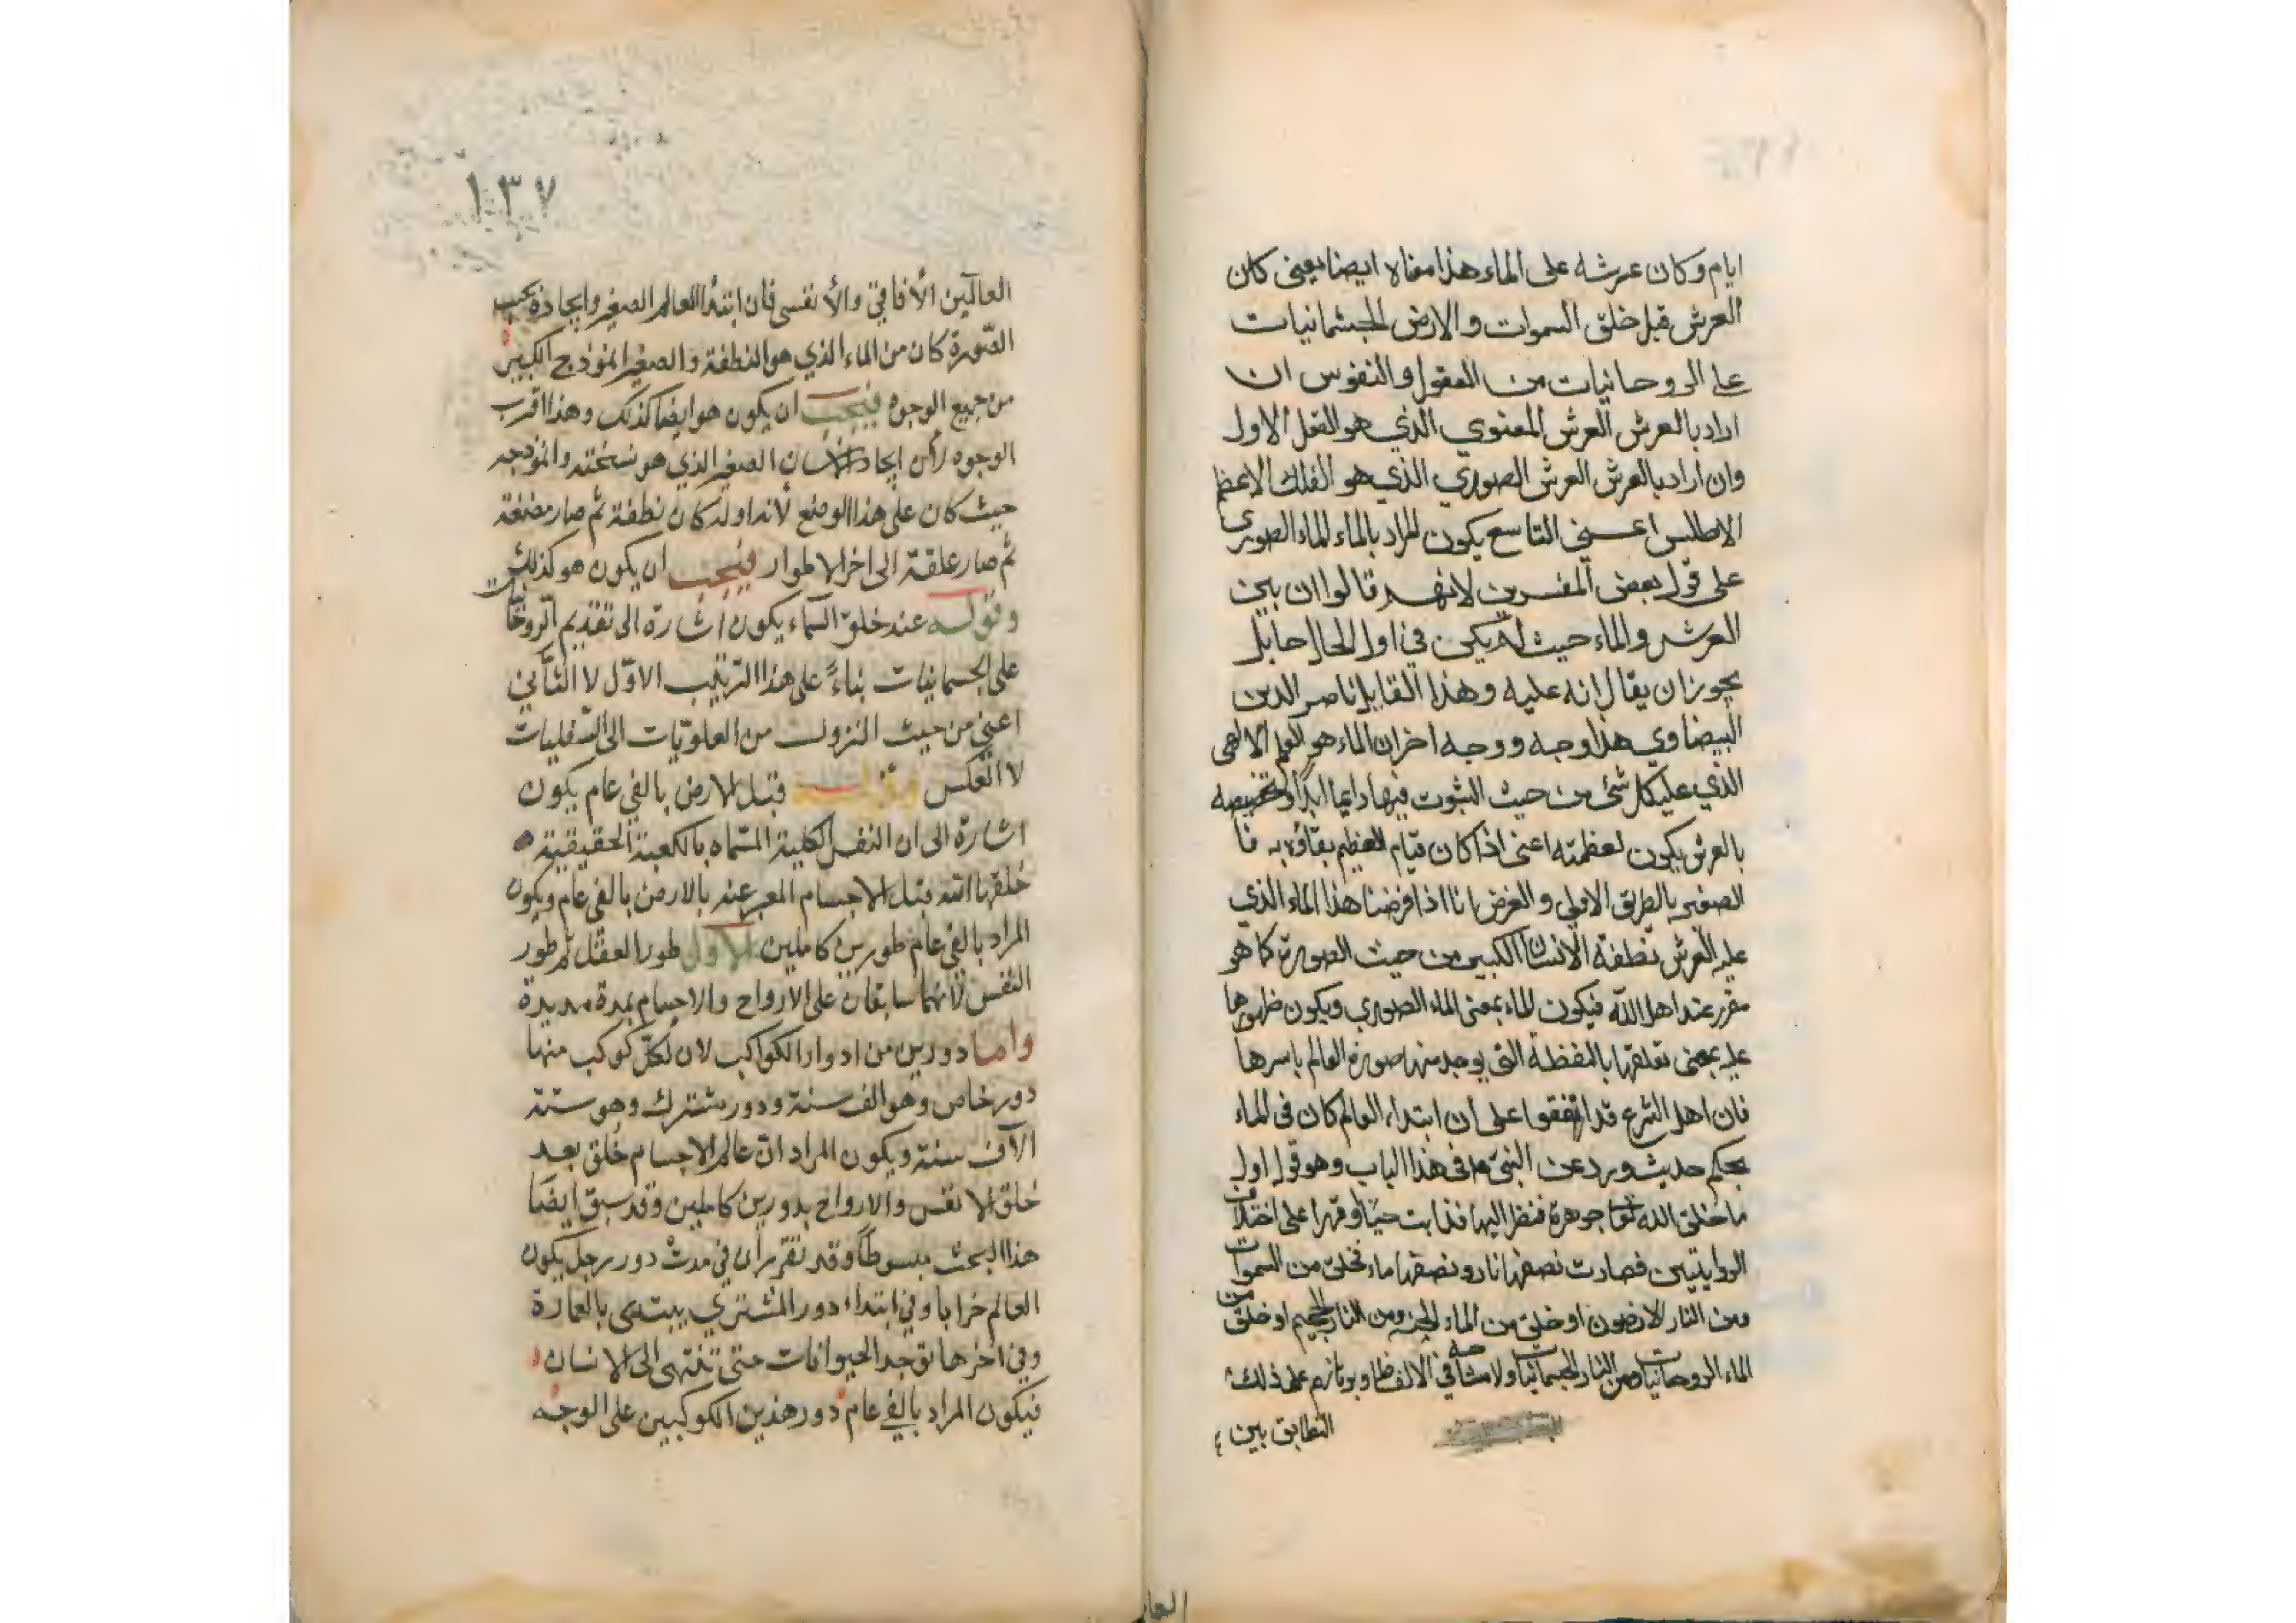 ايام وكان عرشه على الماء هذا معناه ايضا يعنى كان
العرش قبل خلق السموات والارض الجسمانيات
على الروحانيات من العقول والنفوس ان
اراد بالعرش العرش المعنوي الذي هو العقل الاول
وان اراد بالعرش العرش الصوري الذي هو الفلك الاعظم
الاطلس اعني التاسع يكون المراد بالماء الماء الصوري
على قول بعض المفسرين لانهم قالوا ان بين
العرش والماء حيث لم يكن في اول الحال حايل
يجوز ان يقال انه عليه وهذا القايل ناصر الدين
البيضاوي هذا وجه ووجه اخر ان الماء هو العلم الالهى
الذي عليه كل شئ من حيث الثبوت فيها دايما ابدا وتخصيصه
بالعرش يكون لعظمته اعنى اذا كان قيام العظيم بقاؤه به فا
الصغير بالطريق الاولى والغرض انا اذا فرضنا هذا الماء الذي
عليه العرش نطفة الانسان الكبير من حيث الصورة كما هو
مقرر عند اهل الله فيكون الماء بمعنى الماء الصوري ويكون ظهورها
عليه بمعنى تعلقها بالنفظة التي يوجد منها صورة العالم باسرها
فان اهل الشرع قد اتفقوا على ان ابتداء العالم كان فى الماء
بحكم حديث ورد عن النبي م فى هذا الباب وهو قول اول
ما خلق الله تعا جوهرة فنظر اليها فذابت حياء وقهرا على اختلاف
الروايتين فصارت نصفها نار ونصفها ماء فخلق من السموات
ومن النار الارضون او خلق من الماء الجنة ومن النار الجحيم او خلق من
الماء الروحانيات ومن النار الجسمانيات ولا مشاحه في الالفاظ و على ذلك
التطابق بين
١٣٧
العالمين الأفاقي والأنفسى فان ابتداء العالم الصغير وايجاده بحسب
الصّورة كان من الماء الذي هو النطفة والصغير انموذج الكبير
من جميع الوجوه فيجب ان يكون هو ايضا كذلك وهذا اقرب
الوجوه لأن ايجاد الانسان الصغير الذي هو نسخته وانموذجه
حيث كان على هذا الوضع لانه اوله كان نطفة ثم صار مضغة
ثم صار علقة الى اخر الاطوار فيجب ان يكون هو كذلك
وقوله عند خلق السماء يكون اشارة الى تقديم الروحانيات
على الجسمانيات بناءً على هذا الترتيب الاوّل لا الثاني
اعني من حيث النزول من العلويّات الى السّفليات
لا العكس وقوله قبل الارض بالفي عام يكون
اشارة الى ان النفس الكلية المسّماه بالكعبة الحقيقية
خلقها الله قبل الاجسام المعبر عنه بالارض بالفي عام ويكون
المراد بالفي عام طورين كاملين الاول طور العقل ثم طور
النفس لانهما سابقان على الارواح والاجسام بمدة مديدة
واما دورين من ادوار الكواكب لان لكلّ كوكب منها
دور خاص وهو الف سنة ودور مشترك وهو ستة
الآف سنة ويكون المراد انّ عالم الاجسام خُلق بعد
خلق الانفس والارواح بدورين كاملين وقد سبق ايضًا
هذا البحث مبسوطًا وقد تقرّر أن في مدت دور زحل يكون
العالم خرابا وفي ابتداء دور المشتري يبتدى بالعمارة
وفي اخرها توجد الحيوانات حتى تنتهى الى الانسان
فيكون المراد بالفي عام دور هذين الكوكبين على الوجه